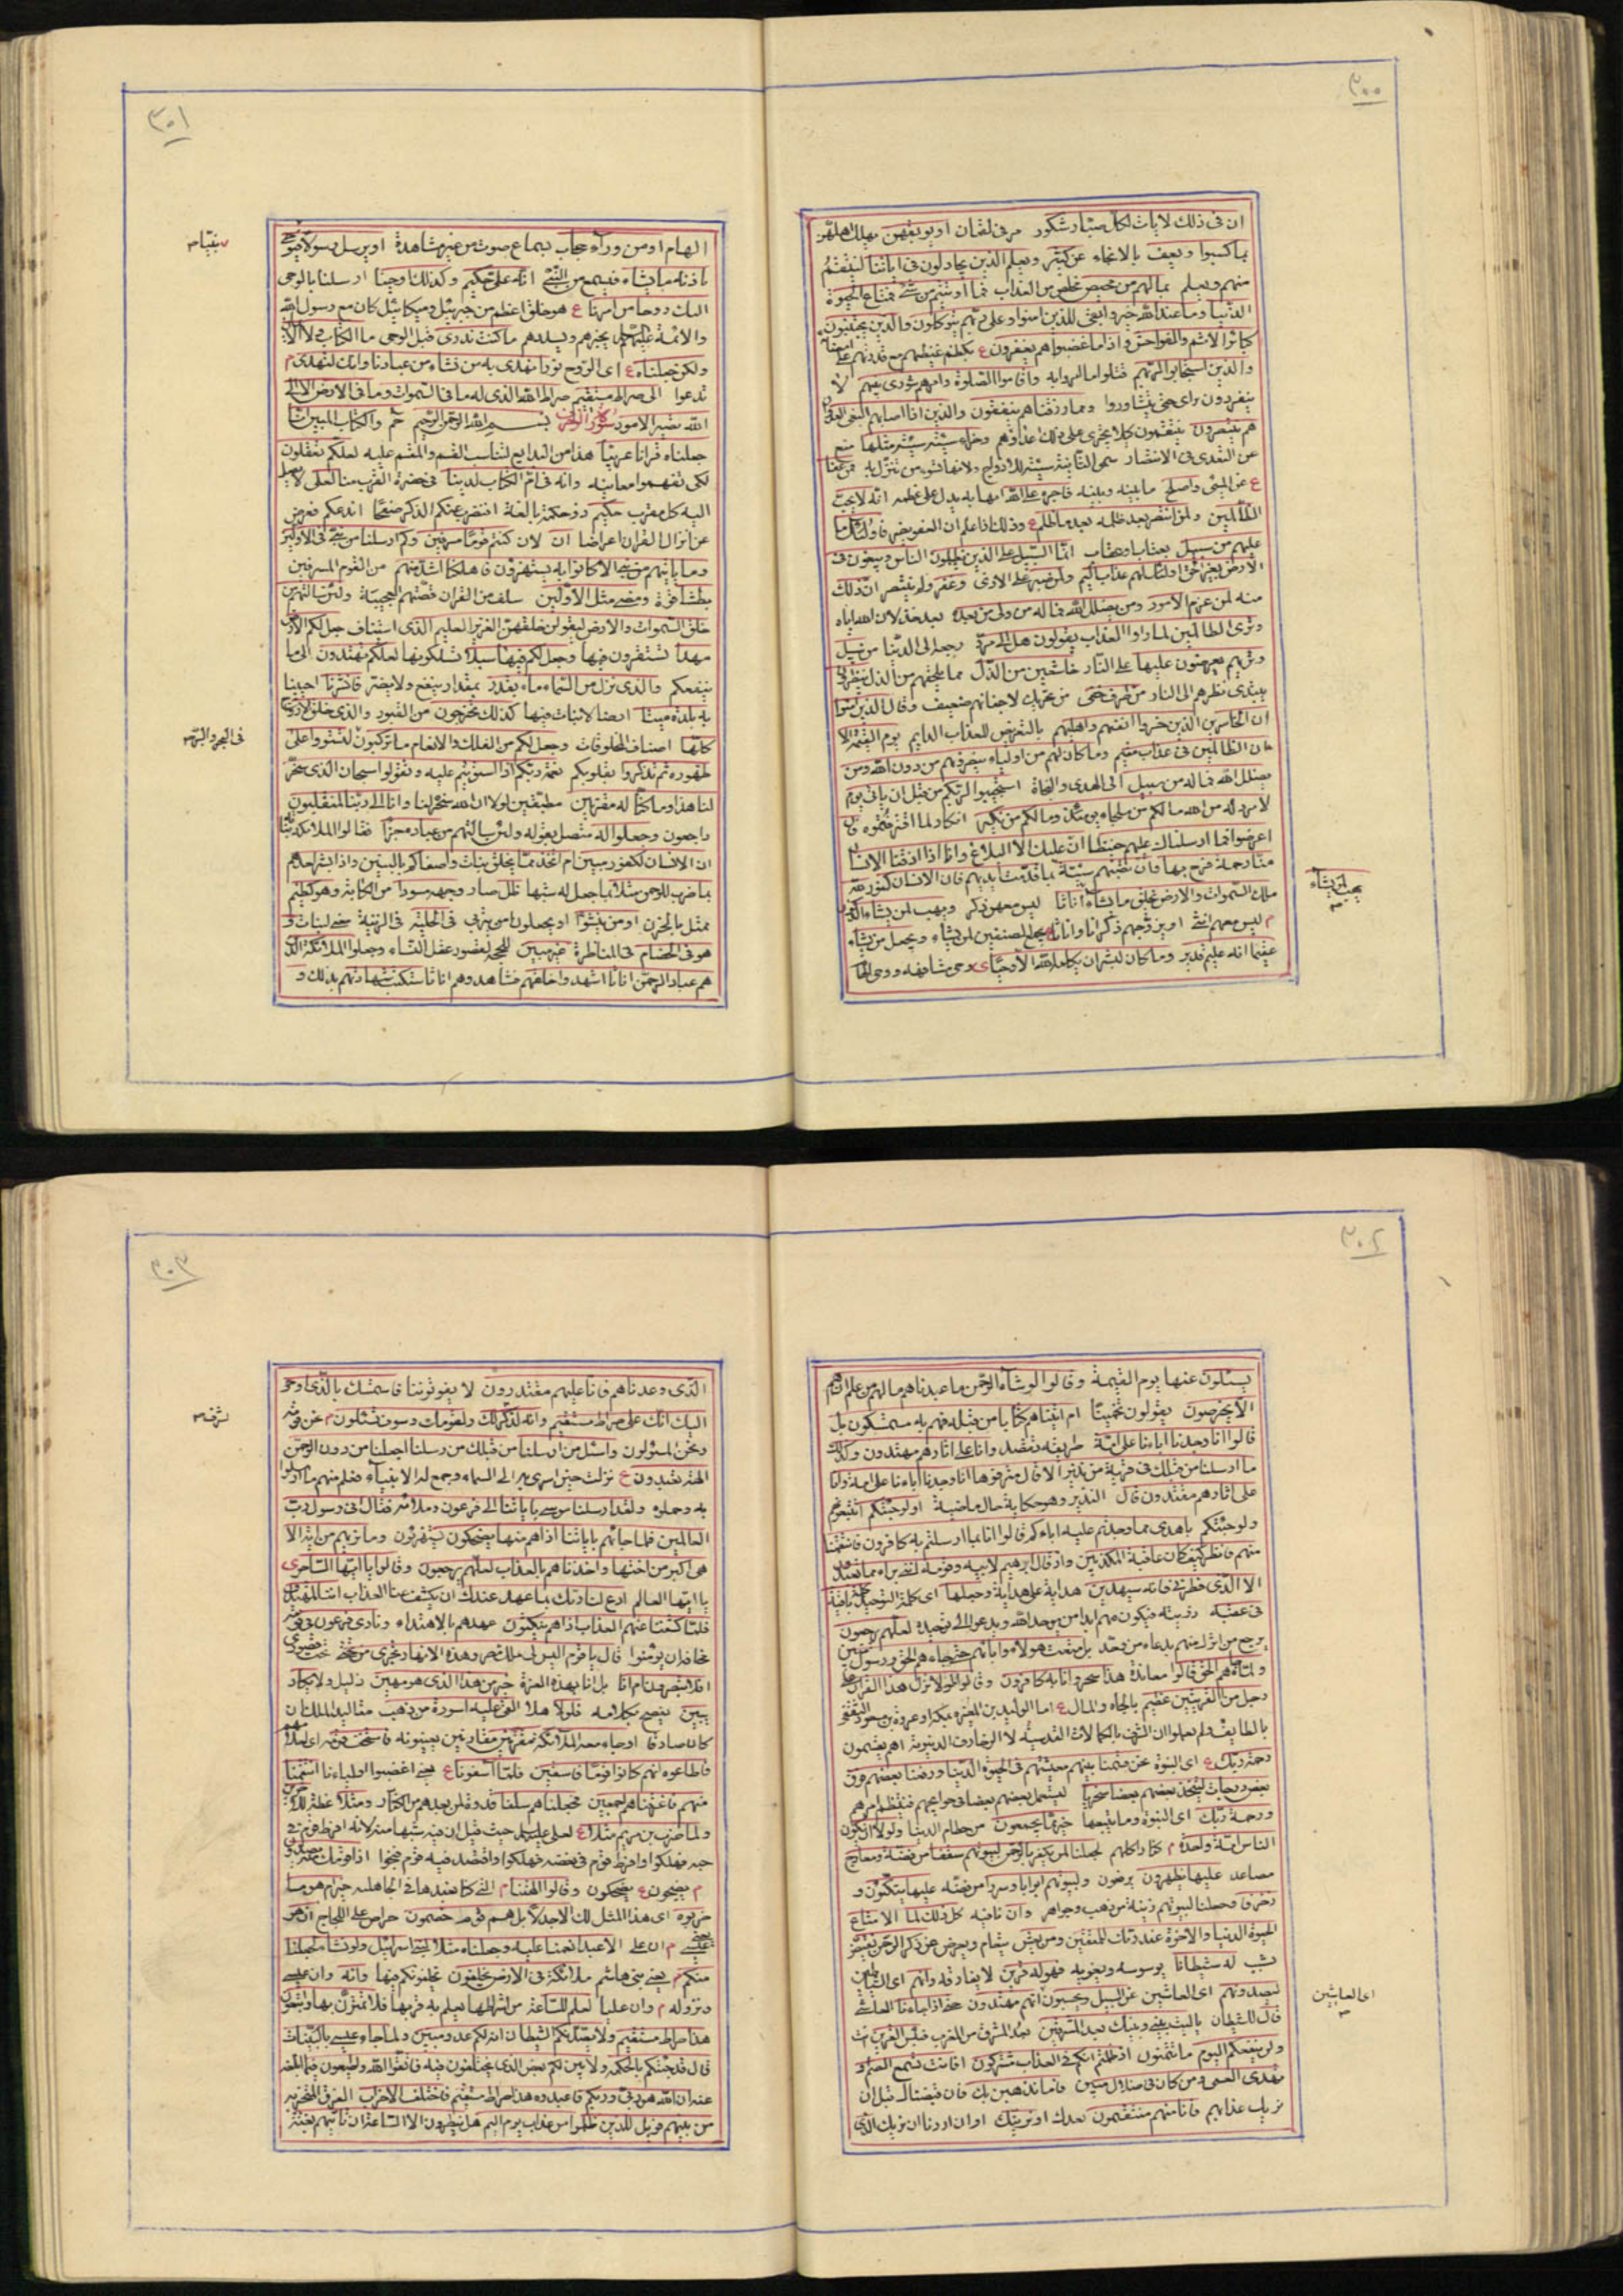 ٣٠٠
ان فى ذلك لايات لكل صبار شكور مر فى لقمان او يوبقهن يهلك اهلهن
بما كسبوا ويعف بالانجاء عن كثير ويعلم الذين يجادلون فى اياتنا لينتقم
منهم ويعلم مالهم من محيص مخلص من العذاب فما اوتيتم من شىء فمتاع الحيوة
الدنيا وما عند الله خير وابقى للذين امنوا وعلى ربهم يتوكلون والذين يجتنبون
كبائر الاثم والفواحش واذا ما غضبوا هم يغفرون ع يكظم غيظهم مع قدرتهم على
والذين استجابوا لربهم قبلوا ما امروا به واقاموا الصلوة وامرهم شورى بينهم لا
ينفردون براى حتى يتشاوروا ومما رزقناهم ينفقون والذين اذا اصابهم البغى
هم ينتصرون ينتقمون وجزاء سيئة سيئة مثلها منع
عن التعدى فى الانتصار سمى الثانية سيئة للازدواج ولانها تسوء من تنزل به فمن عفا
ع عن المسىء واصلح ما بينه وبينه فاجره على الله انه لا يحب
الظالمين ولمن انتصر بعد ظلمه بعد ما ظلم ع فاولئك ما
عليهم من سبيل بعتاب وعقاب انما السبيل على الذين يظلمون الناس ويبغون فى
الارض بغير الحق اولئك لهم عذاب اليم ولمن صبر على الاذى وغفر ولم ينتصر ان ذلك
منه لمن عزم الامور ومن يضلل الله فما له من ولى من بعده
وترى الظالمين لما راوا العذاب يقولون هل الى مرد رجعة الى الدنيا من سبيل
وتريهم يعرضون عليها على النار خاشعين من الذل مما يلحقهم من الذل ينظرون
يبتدى نظرهم الى النار من طرف خفى من تحريك لاجفانهم ضعيف وقال الذين امنوا
ان الخاسرين الذين خسروا انفسهم واهليهم بالتعريض للعذاب الدايم يوم القيمة الا
ان الظالمين فى عذاب مقيم وما كان لهم من اولياء ينصرونهم من دون الله ومن
يضلل الله فما له من سبيل الى الهدى والنجاة استجيبوا لربكم من قبل ان ياتى يوم
لا مرد له من الله ما لكم من ملجاء يومئذ وما لكم من نكير انكار لما اقترفتموه فان
اعرضوا فما ارسلناك عليهم حفيظا ان عليك الا البلاغ وانا اذا اذقنا الانسان
منا رحمة فرح بها وان تصبهم سيئة بما قدمت ايديهم فان الانسان كفور لله
ملك السموات والارض يخلق ما يشاء اناثا ليس معهن ذكر ويهب لمن يشاء الذكور
م ليس معهم انثى او يزوجهم ذكرانا واناثا يجمع الصنفين لمن يشاء ويجعل من يشاء
عقيما انه عليم قدير وما كان لبشر ان يكلمه الله الا وحيا
يهب لمن يشاء
٣٠١
الهام او من وراء حجاب بسماع صوت من غير مشاهدة او يرسل رسولا فيوحى
باذنه ما يشاء فيسمع من النبى انه على حكيم وكذلك اوحينا ارسلنا بالوحى
اليك روحا من امرنا ع هو خلق اعظم من جبرئيل وميكائيل كان مع رسول الله
والائمة عليهم يخبرهم ويسددهم ما كنت تدرى قبل الوحى ما الكتاب ولا الايمان
ولكن جعلناه ع اى الروح نورا نهدى به من نشاء من عبادنا وانك لتهدى م
تدعوا الى صراط مستقيم صراط الله الذى له ما فى السموات وما فى الارض الا الى
الله تصير الامور سورة الزخرف بسم الله الرحمن الرحيم حم والكتاب المبين انا
جعلناه قرانا عربيا هذا من البدايع لتناسب القسم والمقسم عليه لعلكم تعقلون
لكى تفهموا معانيه وانه فى ام الكتاب لدينا فى حضرة القرب منا لعلى لا يصل
اليه كل مقرب حكيم ذو حكمة بالغة افنضرب عنكم الذكر صفحا اندعكم فنعرض
عن انزال القران اعراضا ان لان كنتم قوما مسرفين وكم ارسلنا من نبى فى الاولين
وما ياتيهم من نبى الا كانوا به يستهزؤن فاهلكنا اشد منهم من القوم المسرفين
بطشا قوة ومضى مثل الاولين سلف من القران قصتهم العجيبة ولئن سالتهم من
خلق السموات والارض ليقولن خلقهن العزيز العليم الذى استيناف جعل لكم الارض
مهدا تستقرون فيها وجعل لكم فيها سبلا تسلكونها لعلكم تهتدون الى ما
ينفعكم والذى نزل من السماء ماء بقدر بمقدار ينفع ولا يضر فانشرنا احيينا
به بلدة ميتا ارضا لا نبات فيها كذلك تخرجون من القبور والذى خلق الازواج
كلها اصناف المخلوقات وجعل لكم من الفلك والانعام ما تركبون لتستووا على
ظهوره ثم تذكروا بقلوبكم نعمة ربكم اذا استويتم عليه وتقولوا سبحان الذى سخر
لنا هذا وما كنا له مقرنين مطيقين لولا ان الله سخره لنا وانا الى ربنا لمنقلبون
راجعون وجعلوا له متصل بقوله ولئن سالتهم من عباده جزءا فقالوا الملائكة بنات
ان الانسان لكفور مبين ام اتخذ مما يخلق بنات واصفاكم بالبنين واذا بشر احدهم
بما ضرب للرحمن مثلا بما جعل له شبها ظل صار وجهه مسودا من الكابة وهو كظيم
ممتلى بالحزن او من ينشؤا او يجعلون من يتربى فى الحلية فى الزينة يعنى البنات و
هو فى الخصام فى المناظرة غير مبين للحجة لقصور عقل النساء وجعلوا الملائكة الذين
هم عباد الرحمن اناثا اشهدوا خلقهم فشاهدوهم اناثا ستكتب شهادتهم بذلك و
فى البحر والبر
٣٠٢
يسئلون عنها يوم القيمة وقالوا لو شاء الرحمن ما عبدناهم مالهم من علم ان هم
الا يخرصون يقولون تخمينا ام اتيناهم كتابا من قبله فهم به مستمسكون بل
قالوا انا وجدنا اباءنا على امة طريقة تقصد وانا على اثارهم مهتدون وكذلك
ما ارسلنا من قبلك فى قرية من نذير الا قال مترفوها انا وجدنا اباءنا على امة وانا
على اثارهم مقتدون قال النذير وهو حكاية حال ماضية اولو جئتكم اتتبعونهم
ولو جئتكم باهدى مما وجدتم عليه اباءكم قالوا انا بما ارسلتم به كافرون فانتقمنا
منهم فانظر كيف كان عاقبة المكذبين واذ قال ابرهيم لابيه وقومه اننى براء مما تعبدون
الا الذى فطرنى فانه سيهدين هداية على هداية وجعلها اى كلمة التوحيد كلمة باقية
فى عقبه ذريته فيكون منهم ابدا من يوحد الله ويدعوا الى توحيده لعلهم يرجعون
يرجع من اشرك منهم بدعاء من وحد بل متعت هؤلاء واباءهم حتى جاءهم الحق ورسول مبين
ولما جاءهم الحق قالوا معاندة هذا سحر وانا به كافرون وقالوا لولا نزل هذا القران على
رجل من القريتين عظيم بالجاه والمال ع اما الوليد بن المغيرة بمكة او عروة بن مسعود الثقفى
بالطايف ولم يعلموا ان الشرف بالكمالات القدسية لا الزخارف الدنيوية اهم يقسمون
رحمة ربك ع اى النبوة نحن قسمنا بينهم معيشتهم فى الحيوة الدنيا ورفعنا بعضهم فوق
بعض درجات ليتخذ بعضهم بعضا سخريا ليستعمل بعضهم بعضا فى حوايجهم فينتظم امرهم
ورحمة ربك اى النبوة وما يتبعها خير مما يجمعون من حطام الدنيا ولولا ان يكون
الناس امة واحدة م كفارا كلهم لجعلنا لمن يكفر بالرحمن لبيوتهم سقفا من فضة ومعارج
مصاعد عليها يظهرون يرقون ولبيوتهم ابوابا وسررا من فضة عليها يتكؤن و
زخرفا وجعلنا لبيوتهم زينة من ذهب وجواهر وان نافية كل ذلك لما الا متاع
الحيوة الدنيا والاخرة عند ربك للمتقين ومن يعش يتعام ويعرض عن ذكر الرحمن نقيض
نسبب له شيطانا يوسوسه ويغويه فهو له قرين لا يفارقه وانهم اى الشياطين
ليصدونهم اى العاشين عن السبيل ويحسبون انهم مهتدون حتى اذا جاءنا العاشى
قال للشيطان يا ليت بينى وبينك بعد المشرقين بعد المشرق من المغرب فبئس القرين انت
ولن ينفعكم اليوم ما تتمنون اذ ظلمتم انكم فى العذاب مشتركون افانت تسمع الصم او
تهدى العمى ومن كان فى ضلال مبين فاما نذهبن بك فان قبضناك قبل ان
نريك عذابهم فانا منهم منتقمون بعدك او نرينك او ان اردنا ان نريك الذى
اى العاشين
٣٠٣
الذى وعدناهم فانا عليهم مقتدرون لا يفوتوننا فاستمسك بالذى اوحى
اليك انك على صراط مستقيم وانه لذكر لك ولقومك وسوف تسئلون
ونحن المسئولون واسئل من ارسلنا من قبلك من رسلنا اجعلنا من دون الرحمن
الهة يعبدون ع نزلت حين اسرى به الى السماء وجمع له الانبياء فعلم منهم ما ارسلوا
به وحملوه ولقد ارسلنا موسى باياتنا الى فرعون وملائه فقال انى رسول رب
العالمين فلما جائهم باياتنا اذا هم منها يضحكون يستهزؤن وما نريهم من اية الا
هى اكبر من اختها واخذناهم بالعذاب لعلهم يرجعون وقالوا يا ايها الساحر اى
يا ايها العالم ادع لنا ربك بما عهد عندك ان يكشف عنا العذاب اننا لمهتدون
فلما كشفنا عنهم العذاب اذا هم ينكثون عهدهم بالاهتداء ونادى فرعون فى قومه
مخافة ان يؤمنوا قال يا قوم اليس لى ملك مصر وهذه الانهار تجرى من تحتى تحت قصورى
افلا تبصرون ام انا بل انا بهذه العزة خير من هذا الذى هو مهين ذليل ولا يكاد
يبين يفصح بكلامه فلولا هلا القى عليه اسورة من ذهب مقاليد الملك ان
كان صادقا او جاء معه الملائكة مقترنين مقارنين يعينونه فاستخف قومه
فاطاعوه انهم كانوا قوما فاسقين فلما اسفونا ع يعنى اغضبوا اولياءنا انتقمنا
منهم فاغرقناهم اجمعين فجعلناهم سلفا قدوة لمن بعدهم من الكفار ومثلا عظة للاخرين
ولما ضرب بن مريم مثلا ع لعلى حيث قيل ان فيه شبها منه لانه افرط قوم فى
حبه فهلكوا وافرط قوم فى بغضه فهلكوا واقتصد فيه قوم فنجوا اذا قومك منه يصدون
م يضجون ع يضحكون وقالوا الهتنا م التى كنا نعبدها فى الجاهلية خير ام هو ما
ضربوه اى هذا المثل لك الا جدلا بل هم قوم خصمون حراص على اللجاج ان هو
يعنى عيسى م ان على الا عبد انعمنا عليه وجعلناه مثلا لبنى اسرائيل ولو نشاء لجعلنا
منكم م يعنى بنى هاشم ملائكة فى الارض يخلفون يخلفونكم فيها وانه وان عيسى
ونزوله م وان عليا لعلم للساعة من اشراطها يعلم به قربها فلا تمترن بها واتبعون
هذا صراط مستقيم ولا يصدنكم الشيطان انه لكم عدو مبين ولما جاء عيسى بالبينات
قال قد جئتكم بالحكمة ولابين لكم بعض الذى يختلفون فيه فاتقوا الله واطيعون فيما ابلغه
عنه ان الله هو ربى وربكم فاعبدوه هذا صراط مستقيم فاختلف الاحزاب الفرق المتحزبة
من بينهم فويل للذين ظلموا من عذاب يوم اليم هل ينظرون الا الساعة ان تاتيهم بغتة
شرف